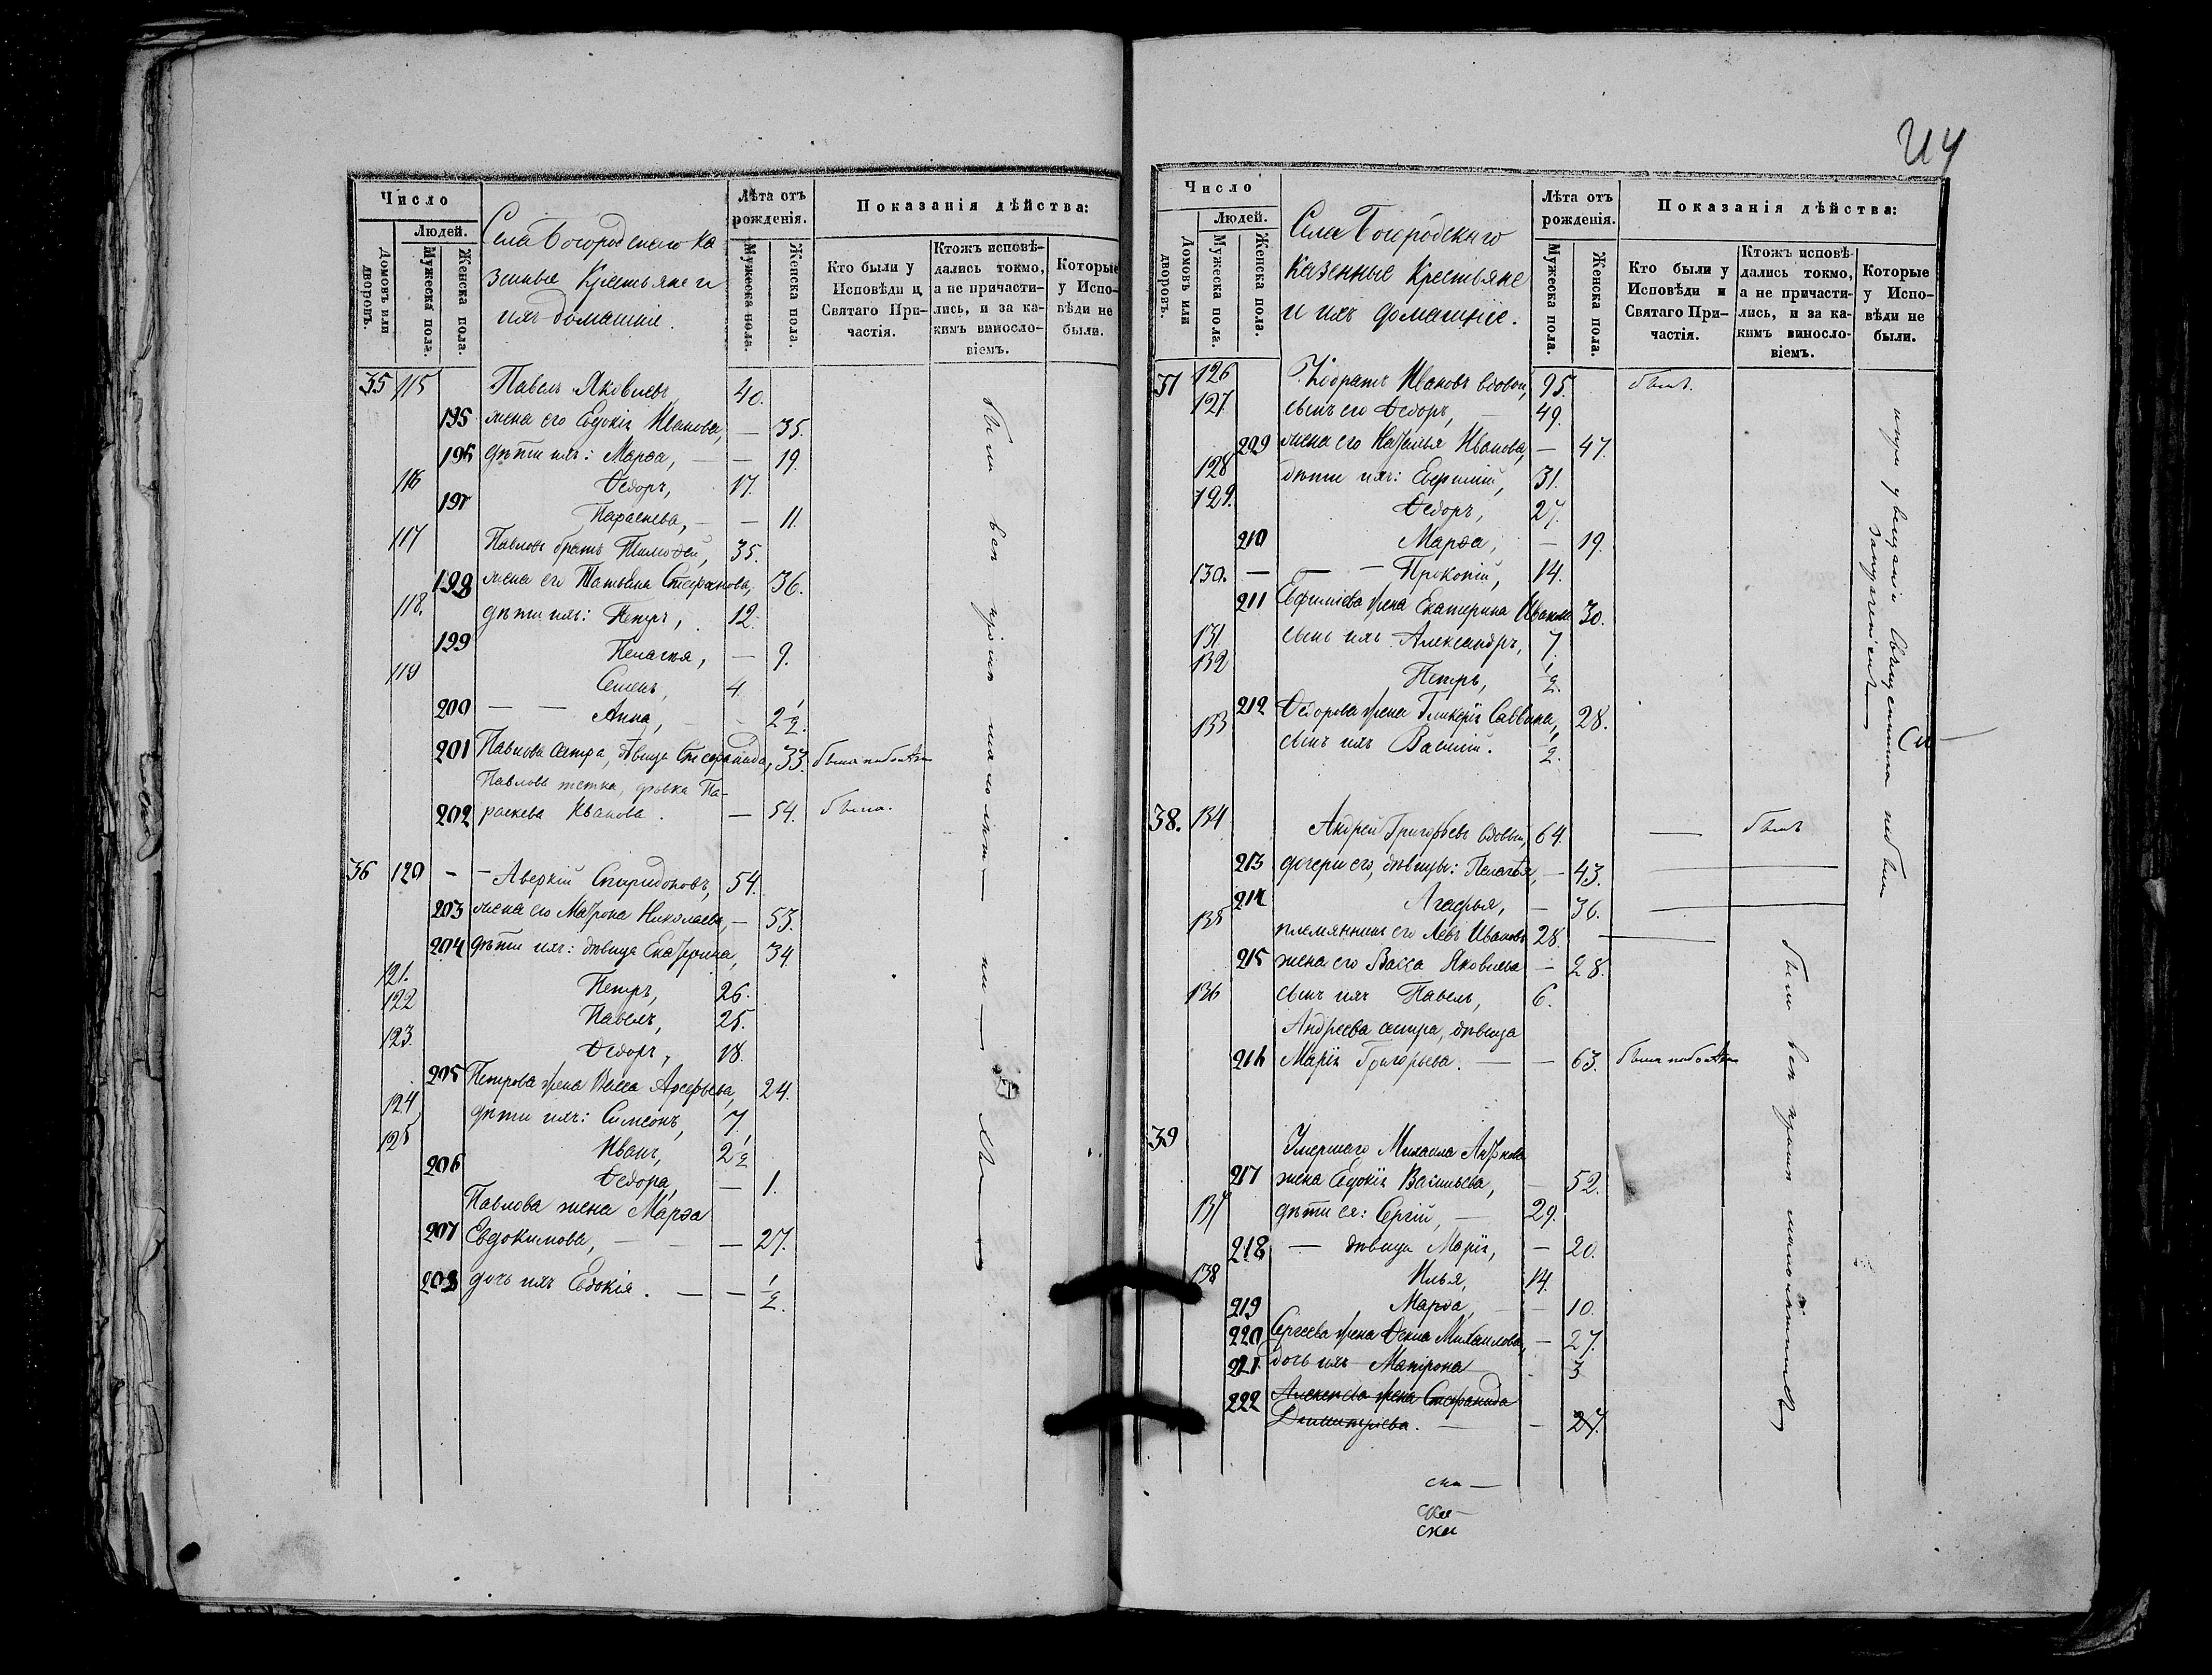 Число
Людей.
Домовъ или дворовъ.
Мужеска пола.
Женска пола.
Села Богородскаго ка
зенные Крестьяне и
ихъ домашніе.
Лѣта отъ рожденія.
Мужеска пола.
Женска пола.
Показанія дѣйства:
Кто были у Исповѣди и Святаго При-частія.
Ктожъ исповѣ-дались токмо, а не причасти-лись, и за ка-кимъ винослo-віемъ.
Которые у Испо-вѣди не были.
35 115 Павелъ Яковлевъ 40.
195 жена его Евдокія Иванова, — 35.
196 дѣти ихъ: Марѳа, — 19.
116 Ѳедоръ, 17.
197 Параскева, — 11.
117 Павловъ братъ Тимоѳей, 35.
198 жена его Татьяна Стефанова, 36.
118. дѣти ихъ: Петръ, 12.
199 Пелагія, — 9.
119 Семенъ, 4.
200 — — Анна, — 2 1/2.
201 Павлова сестра, дѣвица Стефанида, 33. была
Павлова тетка, дѣвка Па-
202 раскева Иванова. — 54. была.
36 120 — — Аверкій Спиридоновъ, 54.
203 жена его Матрона Николаева, — 53.
204 дѣти ихъ: дѣвица Екатерина, 34.
121. Петръ, 26.
122 Павелъ, 25.
123. Ѳедоръ, 18.
205 Петрова жена Васса Арефьева, 24.
124 дѣти ихъ: Симеонъ, 7.
125 Иванъ, 2 1/2
206 Ѳедора, — 1.
Павлова жена Марѳа
207 Евдокимова, — — 27.
208 дочь ихъ Евдокія. — — 1/2.
были всѣ
114
Число
Людей.
Домовъ или дворовъ.
Мужеска пола.
Женска пола.
Села Богородскаго
казенные Крестьяне
и ихъ домашніе.
Лѣта отъ рожденія.
Мужеска пола.
Женска пола.
Показанія дѣйства:
Кто были у Исповѣди и Святаго При-частія.
Ктожъ исповѣ-дались токмо, а не причасти-лись, и за ка-кимъ винослo-віемъ.
Которые у Испо-вѣди не были.
37 126 Кодратъ Ивановъ вдовъ, 95. былъ.
127 сынъ его Ѳедоръ, — 49.
209 жена его Наталья Иванова, — 47.
128 дѣти ихъ: Евфимій, 31.
129. Ѳедоръ, 27.
210 Марѳа, — 19.
130. — — — Прокопій, 14.
211 Евфиміева жена Екатерина Иванова 30.
131 сынъ ихъ Александръ, 7.
132 Петръ, 1/2.
212 Ѳедорова жена Гликерія Саввина, 28.
133 сынъ ихъ Василій. 1/2.
38. 134 Андрей Григорьевъ вдовый, 64. — былъ
213 дочери его, дѣвицы: Пелагія, — 43.
214 Агафья, — 36.
135 племянникъ его Левъ Ивановъ 28. —
215 жена его Васса Яковлева — 28.
136 сынъ ихъ Павелъ, 6.
Андреева сестра, дѣвица
216 Марія Григорьева. — — 63. была
39 Умершаго Михаила
217 жена Евдокія Васильева, — 52.
137 дѣти ея: Сергій, — 29.
218 — дѣвица Марія, — 20.
138 Илья, 14.
219 Марѳа, — 10.
220 Сергеева жена Ѳекла Михаилова, — 27.
221. дочь ихъ Матрона 3
222 Алексѣева жена Стефанида
Димитріева. — — 27.